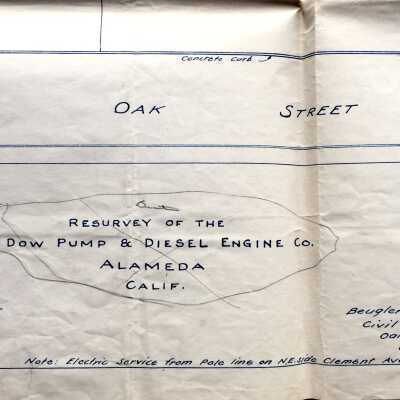 Concrete Curb
OAK STREET
RESURVEY OF THE
DOW PUMP & DIESEL ENGINE CO.
ALAMEDA
CALIF.
Beugler
Civil
Oa
Note: Electric Service from Pole line on N.E. side Clement Av